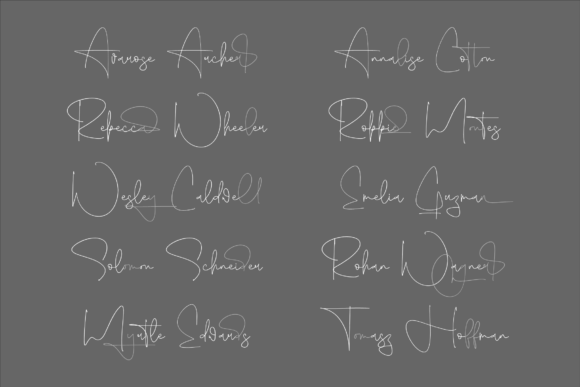 Avarose Archer
Annalise Cotton
Rebecca Wheeler
Robbie Montes
Wesley Caldwell
Emelia Guzman
Solomon Schneider
Rohan Wayners
Myrtle Edwards
Tomasz Hoffman